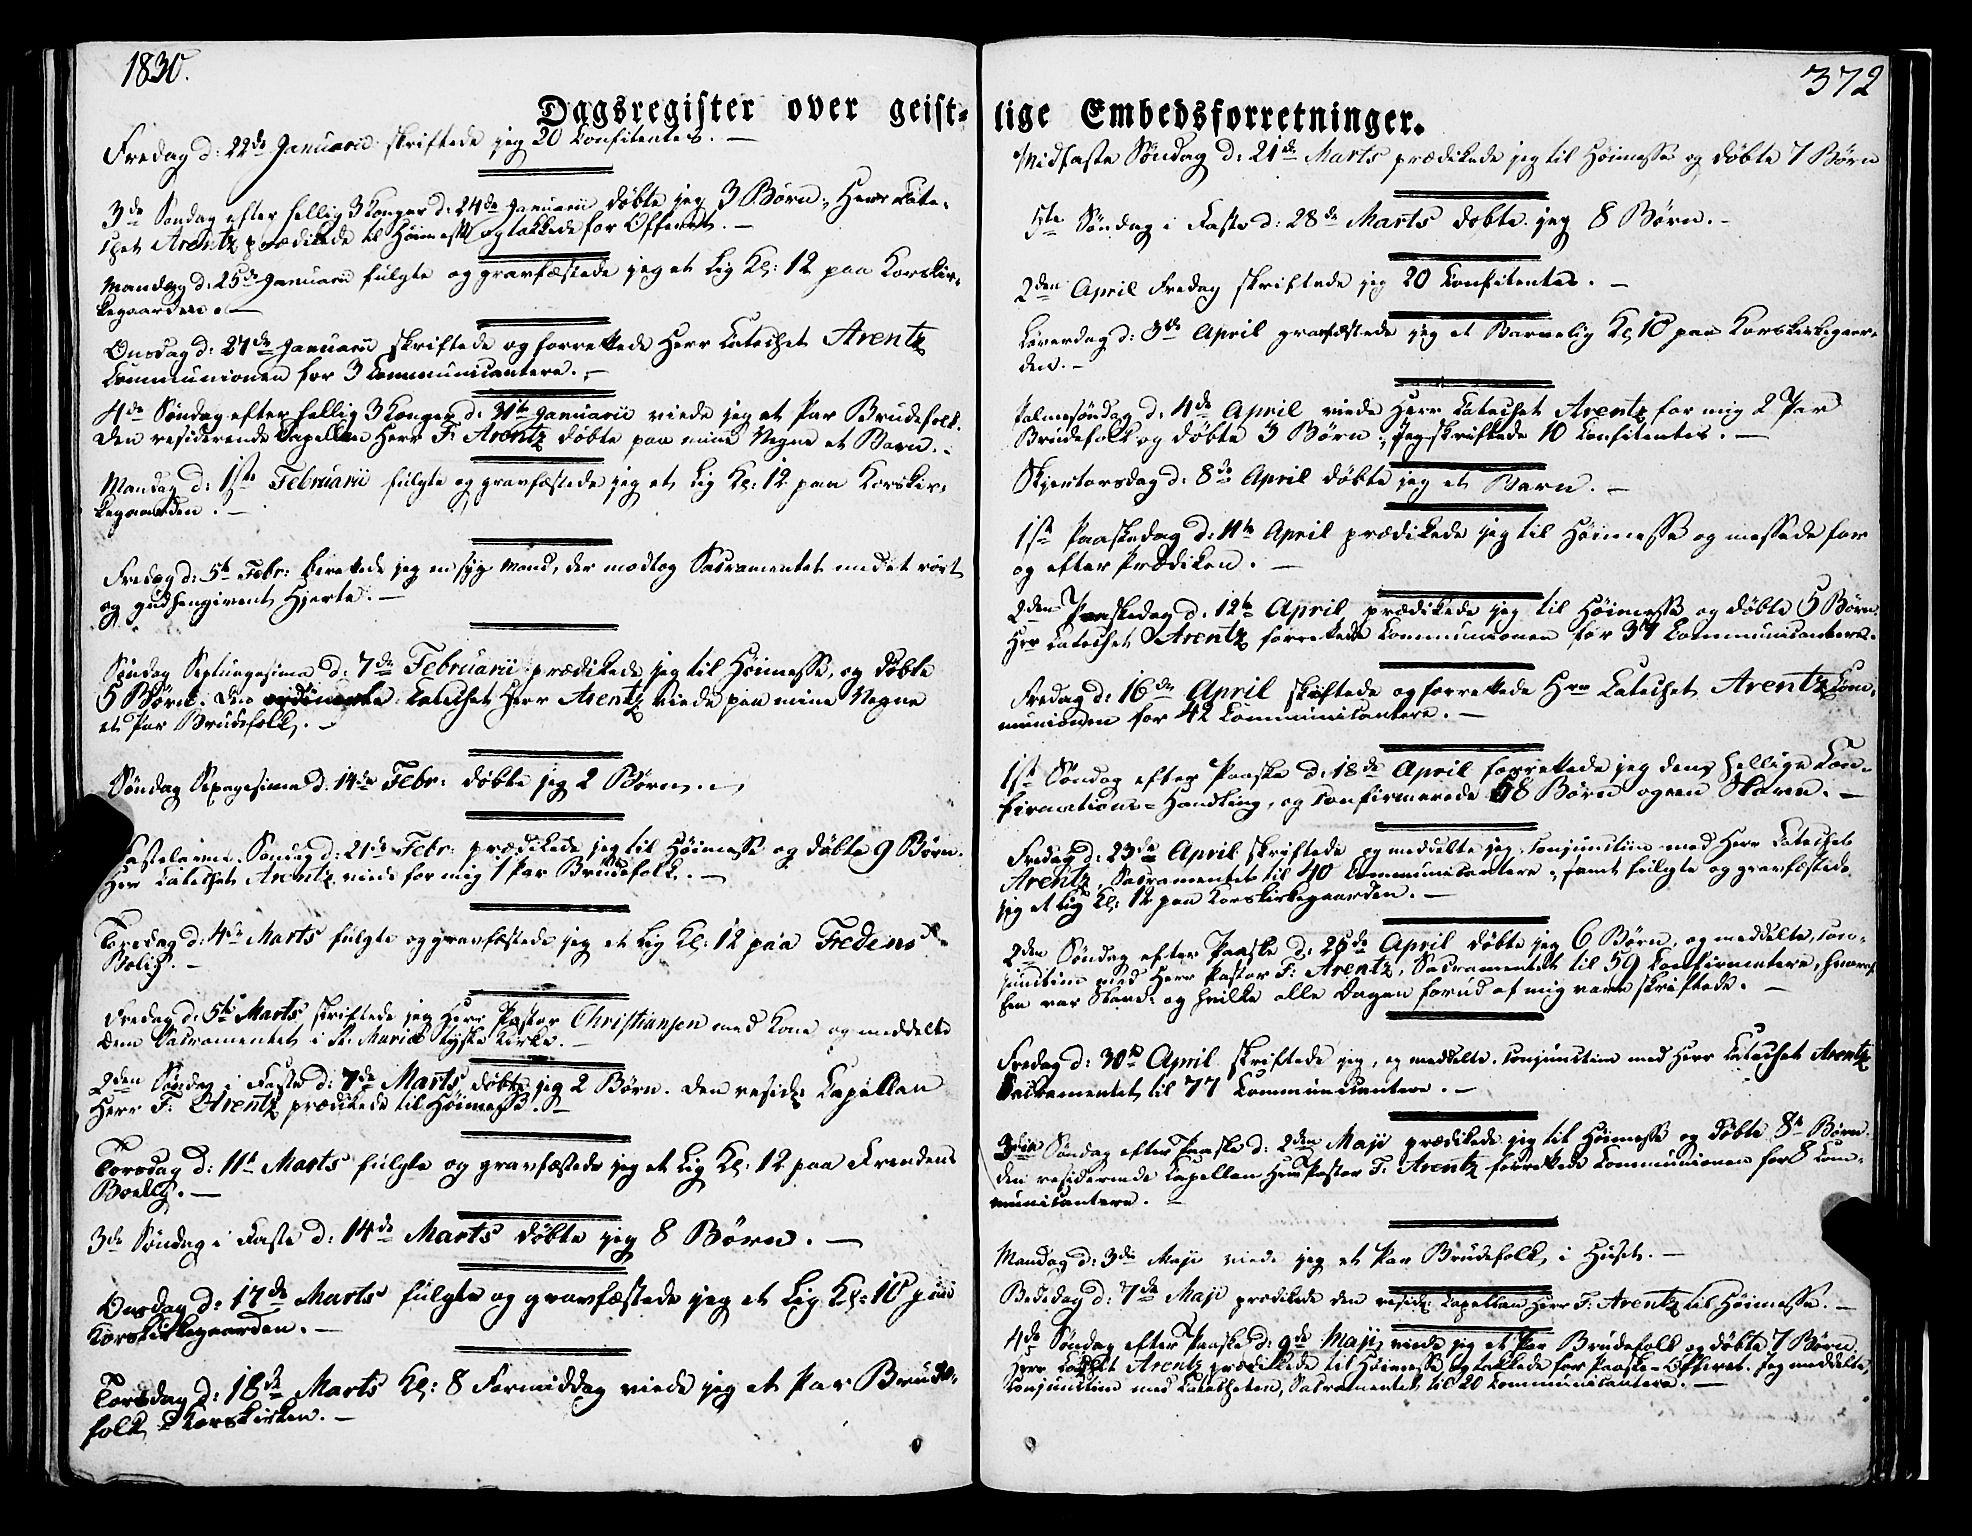 1830.
Dagsregister over geist-
Fredag d: 22de Januarii skriftede jeg 20 Confitentes. —
3de Søndag efter hellig 3 Konger d: 24de Januarii døbte jeg 3 Børn; Herr Cate-
chet Arentz prædikede til Høimesse og takkede for Offeret. —
Mandag d: 25de Januarii fulgte og gravfæstede jeg et Lig Kl: 12 paa Korskir-
kegaarden. —
Onsdag d: 27de Januarii skriftede og forrettede Herr Catechet Arentz
Communionen for 3 Communicantere. —
4de Søndag efter hellig 3 Konger d: 31te Januarii viede jeg et Par Brudefolk.
Den residerende Capellan Herr F: Arentz døbte paa mine Vegne et Barn. -
Mandag d: 1ste Februarii fulgte og gravfæstede jeg et Lig Kl: 12 paa Korskir-
kegaarden. —
Fredag d: 5te Febr: berettede jeg en syg Mand, der modtog Sacramentet med et rørt
og gudhengivent Hjerte. —
Søndag Septuagesima d: 7de Februarii prædikede jeg til Høimesse, og døbte
5 Børn. Den Catechet Herr Arentz viede paa mine Vegne
et Par Brudefolk. —
Søndag Sexagesima d: 14de Febr: døbte jeg 2 Børn. —
Fastelavns Søndag d: 21de Febr: prædikede jeg til Høimesse og døbte 9 Børn.
Herr Catechet Arentz viede for mig 1 Par Brudefolk. —
Torsdag d: 4de Marts fulgte og gravfæstede jeg et Lig Kl: 12 paa Fredens
Bolig. —
Fredag d: 5te Marts skriftede jeg Herr Pastor Christiansen med Kone og meddelte
dem Sacramentet i St. Mariæ tydske Kirke. —
2den Søndag i Faste d: 7de Marts døbte jeg 2 Børn. Den resid: Capellan
Herr F: Arentz prædikede til Høimesse. —
Torsdag d: 11te Marts fulgte og gravfæstede jeg et Lig Kl: 12 paa Fredens
Boelig. —
3de Søndag i Faste d: 14de Marts døbte jeg 8 Børn. —
Onsdag d: 17de Marts fulgte og gravfæstede jeg et Lig Kl: 10 paa
Korskirkegaarden. —
Torsdag d: 18de Marts Kl: 8 Formiddag viede jeg et Par Brude-
folk i Korskirken. —
372
lige Embedsforretninger.
Midfaste Søndag d: 21de Marts prædikede jeg til Høimesse og døbte 7 Børn
5te Søndag i Faste d: 28de Marts døbte jeg 8 Børn. -
2den April Fredag skriftede jeg 20 Confitentes. —
Løverdag d: 3de April gravfæstede jeg et Barnelig Kl 10 paa Korskirkegaar-
den. -
Palmesøndag d: 4de April viede Herr Catechet Arentz for mig 2 Par
Brudefolk og døbte 3 Børn; jeg skriftede 10 Confitentes. —
Skjertorsdag d: 8de April døbte jeg et Barn. —
1ste Paaskedag d: 11te April prædikede jeg til Høimesse og messede for
og efter Prædiken. —
2den Paaskedag d. 12te April prædikede jeg til Høimesse og døbte 5 Børn.
Hr Catechet Arentz forrettede Communionen for 37 Communicantere.
Fredag d: 16de April skriftede og forrettede Herr Catechet Arentz Com-
munionen for 42 Communicantere. —
1ste Søndag efter Paaske d: 18de April forrettede jeg den hellige Con-
firmations-Handling, og confirmerede 58 Børn og en Slaven. —
Fredag d: 23de April skriftede og meddelte jeg conjunctim med Herr Catechet
Arentz, Sacramentet til 40 Communicantere; samt fulgte og gravfæstede
jeg et Lig Kl: 12 paa Korskirkegaarden. —
2den Søndag efter Paaske d: 25de April døbte jeg 6 Børn, og meddelte, con-
junctim med Herr Pastor F: Arentz, Sacramentet til 59 Confirmatere, hvoraf
een var Slave: og hvilke alle Dagen forud af mig vare skriftede. —
Fredag d: 30te April skriftede jeg, og meddelte conjunctim med Herr Catechet Arentz
Sacramentet til 77 Communicantere. —
3die Søndag efter Paaske d: 2den Maji prædikede jeg til Høimesse og døbte 8te Børn.
den residerende Capellan Herr Pastor F: Arentz forrettede Communionen for 8 Com-
municantere. —
Mandag d: 3die Maji viede jeg et Par Brudefolk i Huset. —
Bededag d: 7de Maji prædikede den resid: Capellan Herr F: Arentz til Høimesse. —
4de Søndag efter Paaske d: 9de Maji viede jeg et Par Brudefolk og døbte 7 Børn.
Herr Catechet Arentz prædikede til Høimesse og takkede for Paaske-Offeret. Jeg meddelte,
conjunctim med Catecheten, Sacramentet til 20 Communicantere. —